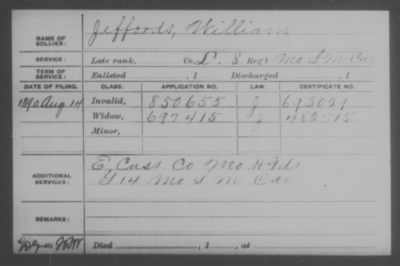 NAME OF SOLDIER: Jeffords, William
SERVICE: Late rank, Co. L. 8 Reg't Mo S M Cav
TERM OF SERVICE: Enlisted , 1 Discharged , 1
DATE OF FILING. CLASS. APPLICATION NO. LAW. CERTIFICATE NO.
1890 Aug 14 Invalid, 850655 J 695021
Widow, 697415 J 482715
Minor,
ADDITIONAL SERVICES: E, Cass Co Mo H Gds
14 Mo S M Cav
REMARKS:
Died , 1 , at